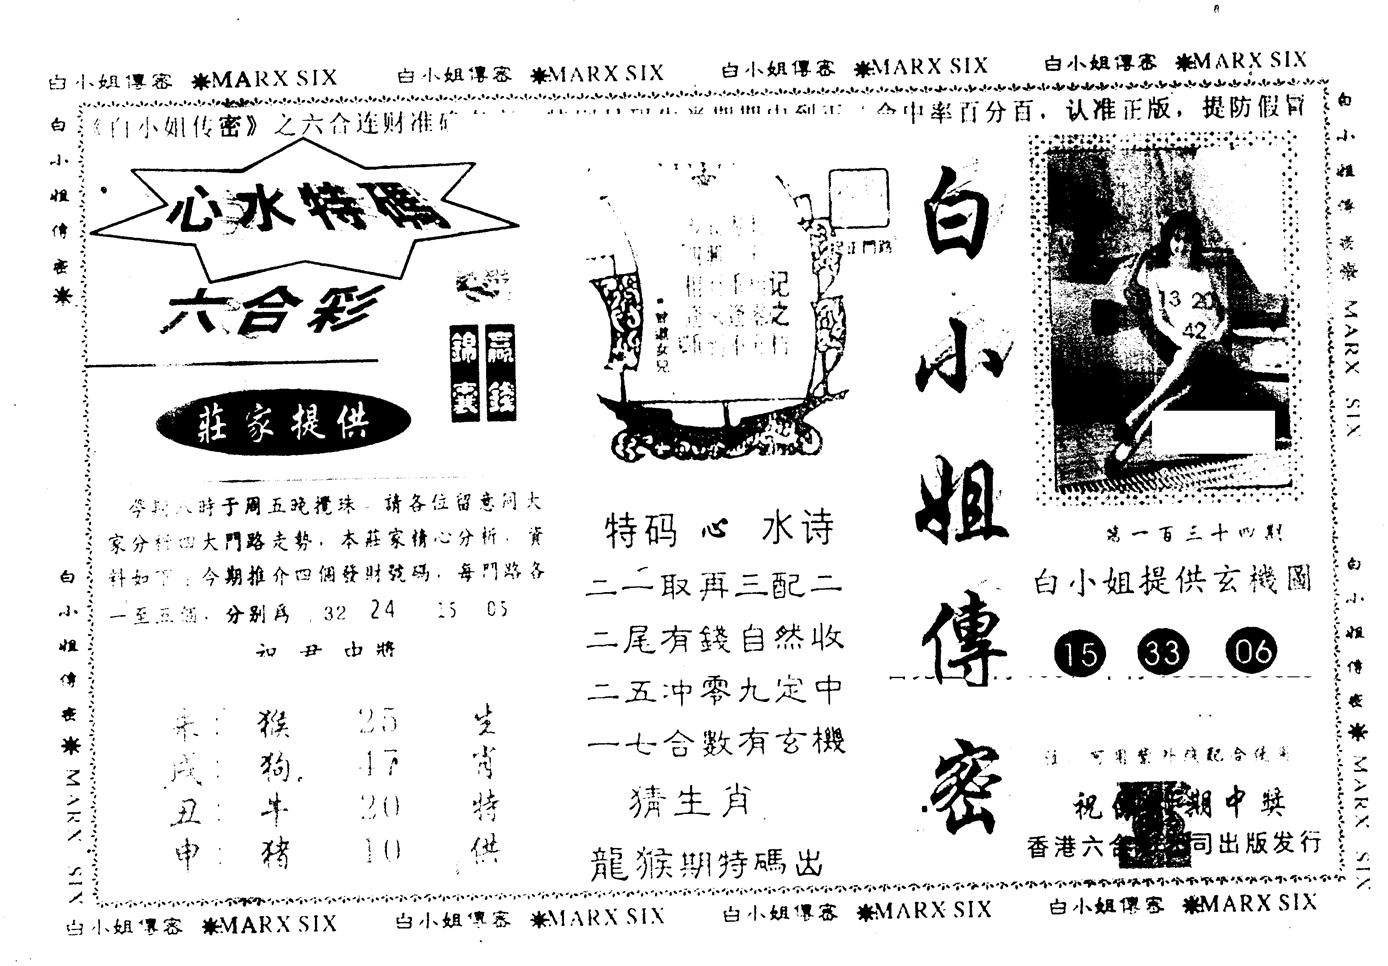 白小姐傳密 ✷MARX SIX 白小姐傳密 ✷MARX SIX 白小姐傳密 ✷MARX SIX 白小姐傳密 ✷MARX SIX
《白小姐传密》之六合连财准
中率百分百，认准正版，提防假冒
白小姐傳密✷
白小姐傳密✷ MARX SIX
心水特碼
六合彩
錦囊
贏錢
莊家提供
時于周五晚攪珠，請各位留意同大
家分析四大門路走勢，本莊家精心分析，資
料如下：今期推介四個發財號碼，每門路各
一至五個，分别爲 32 24 15 05
如尹中將
未：猴 25 生
戌：狗 47 肖
丑：牛 20 特
申：猪 10 供
门路
记之
特码心水诗
二一取再三配二
二尾有錢自然收
二五冲零九定中
一七合數有玄機
猜生肖
龍猴期特碼出
白小姐傳密
13 20
42
第一百三十四期
白小姐提供玄機圖
15 33 06
期中獎
香港六合
司出版发行
白小姐傳密✷ MARX SIX
白小姐傳密✷ MARX SIX
白小姐傳密 ✷MARX SIX 白小姐傳密 ✷MARX SIX 白小姐傳密 ✷MARX SIX 白小姐傳密 ✷MARX SIX